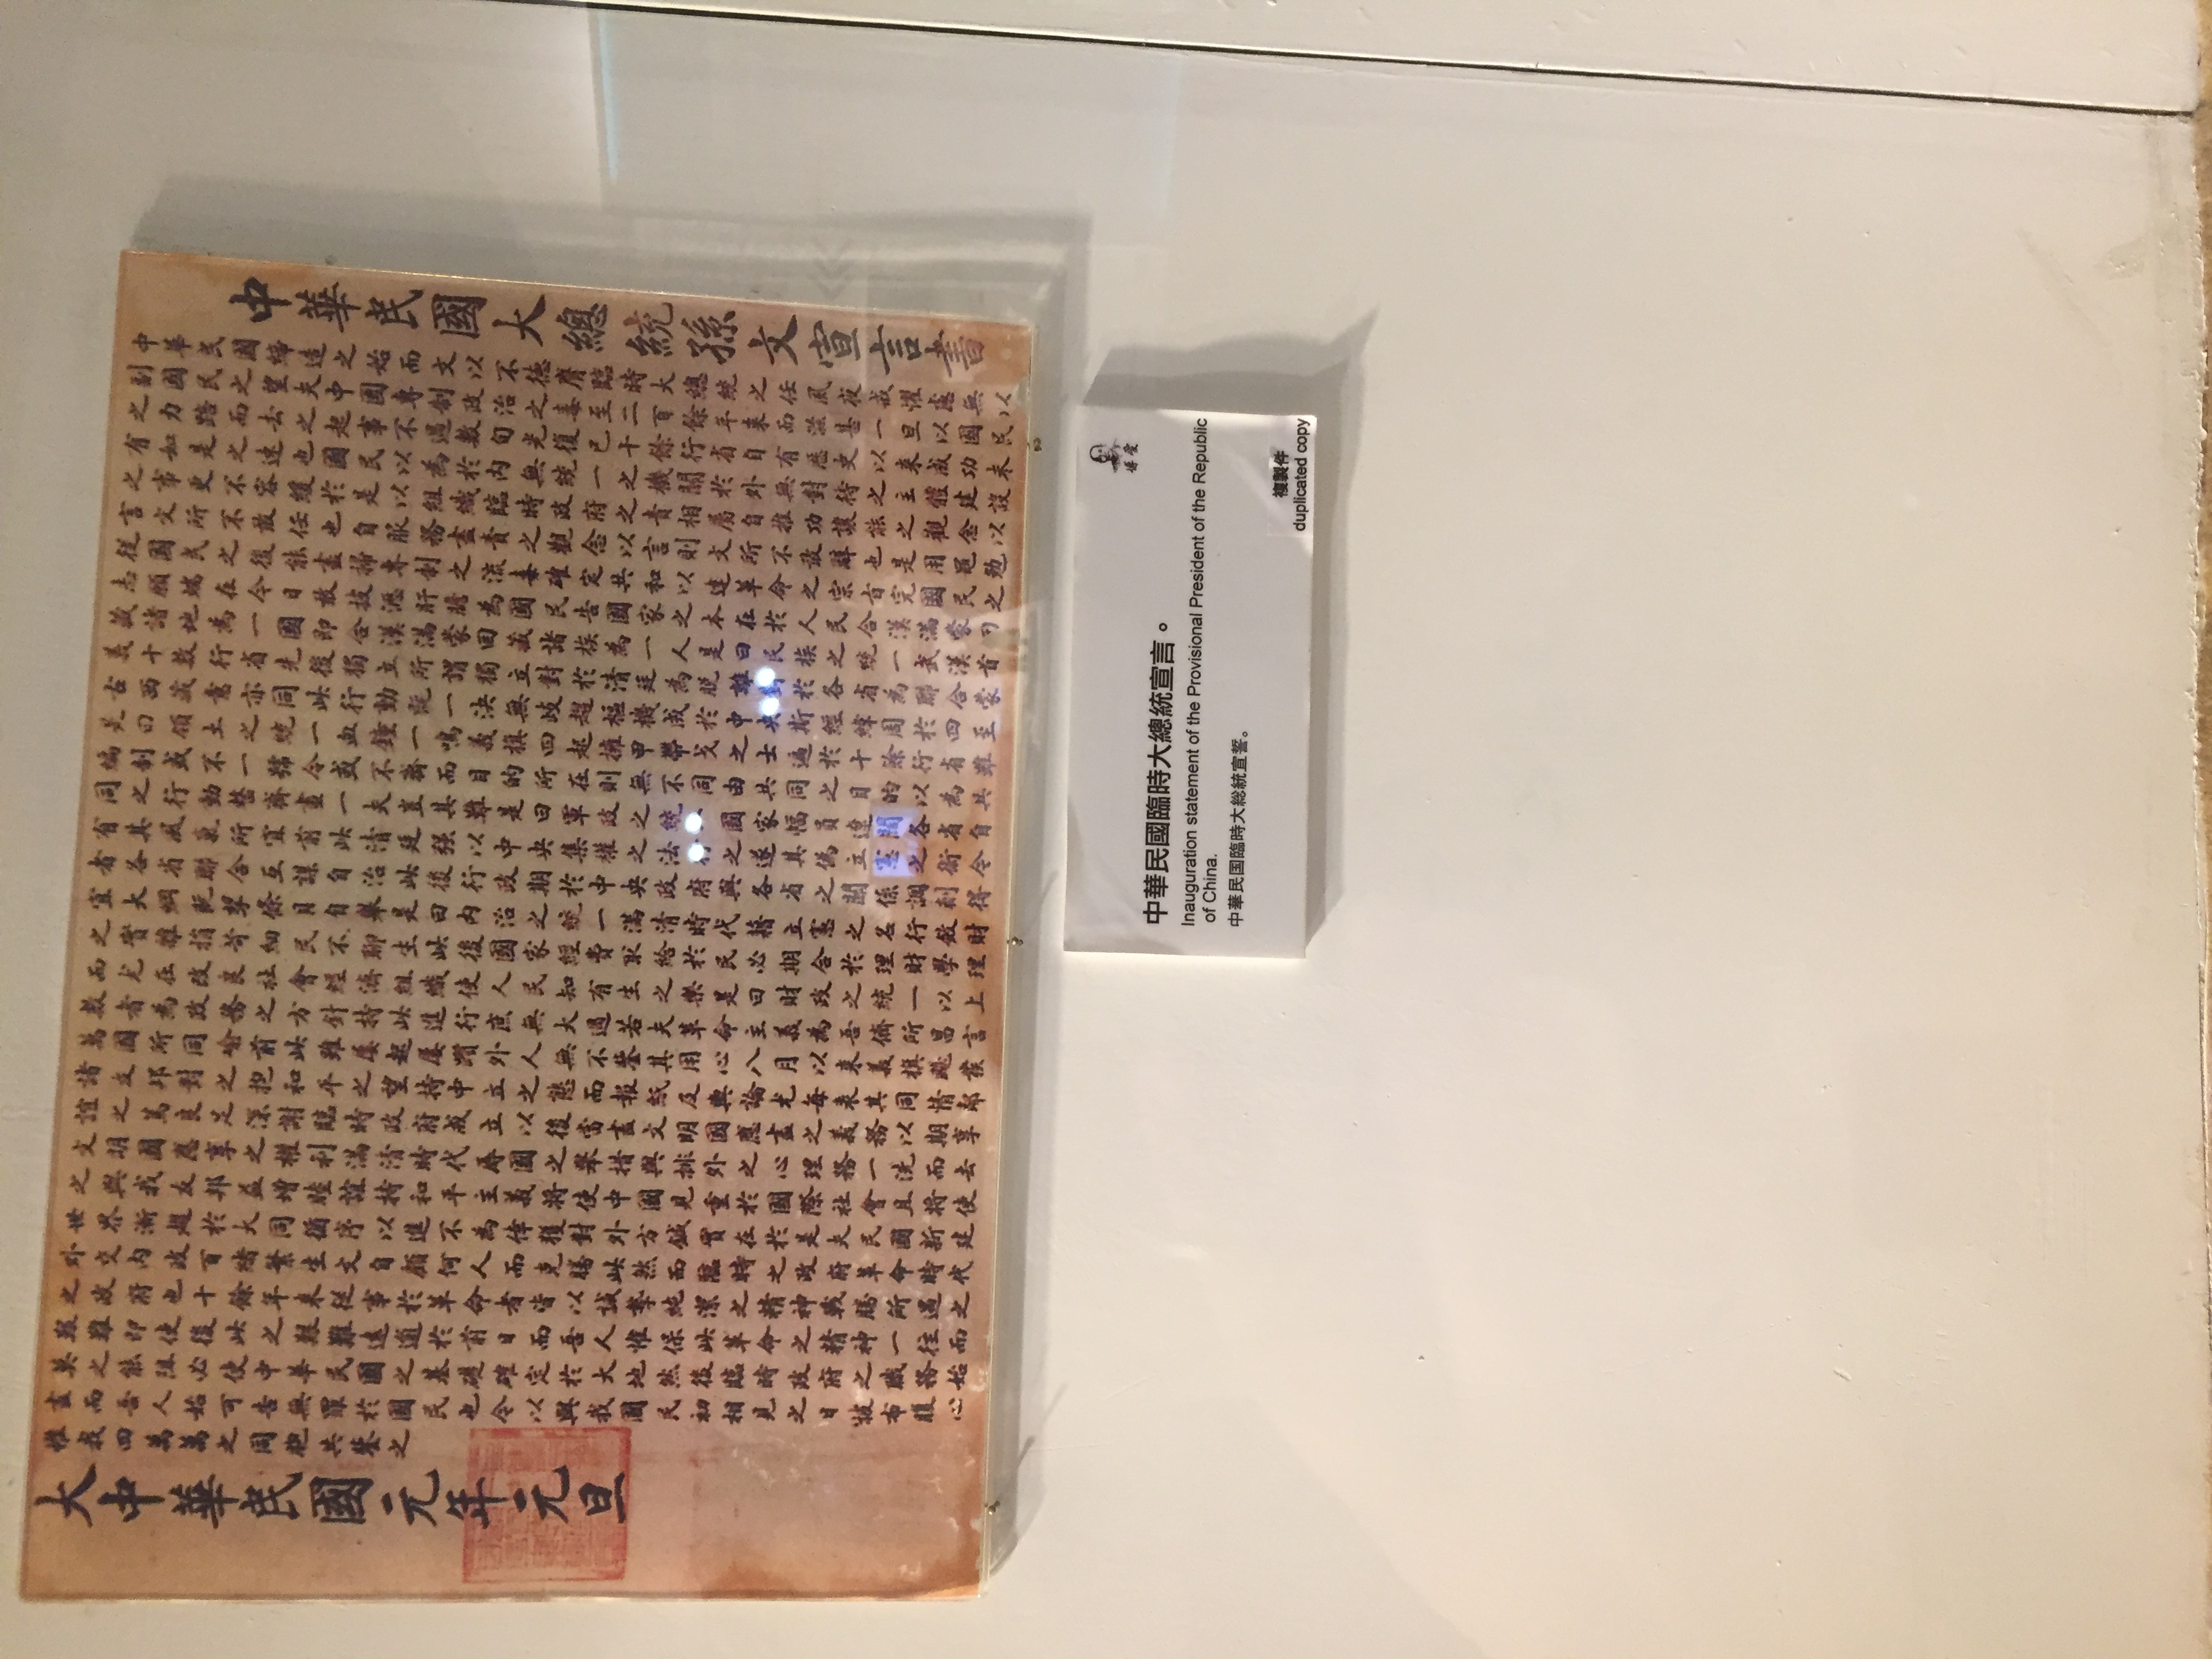 中華民國大總統孫文宣言書
中華民國締造之始而文以不德膺臨時大總統之任夙夜戒懼慮無以
副國民之望夫中國專制政治之毒至二百餘年来而滋甚一旦以國民
之力踣而去之起事不過數旬光復已十餘行省自有歷史以来成功未
有如是之速也國民以為於內無統一之機關於外無對待之主體建設
之事更不容緩於是以組織臨時政府之責相屬自推功讓能之觀念以
言文所不敢任也自服務盡責之觀念以言則文所不敢辭也是用黽勉
從國民之後能盡掃專制之流毒確定共和以達革命之宗旨完國民之
志願端在今日敢披瀝肝膽為國民告國家之本在於人民合漢滿蒙回
藏諸地為一國即合漢滿蒙回藏諸族為一人是曰民族之統一武漢首
義十數行省先後獨立所謂獨立對於清廷為脫離對於各省為聯合蒙
古西藏意亦同此行動既一決無歧趨樞機成於中央斯經緯周於四至
是曰領土之統一血鐘一鳴義旗四起擁甲帶戈之士遍於十餘行省雖
編制或不一號令或不齊而目的所在則無不同由共同之目的以為共
同之行動整齊畫一夫豈其難是曰軍政之統一國家幅員遼闊各省自
有其風氣所宜前此清廷强以中央集權之法行之遂其偽立憲之術今
者各省聯合互謀自治此後行政期於中央政府與各省之關係調劑得
宜大綱既挈條目自舉是曰內治之統一滿清時代藉立憲之名行斂財
之實雜捐苛細民不聊生此後國家經費取給於民必期合於理財學理
而尤在改良社會經濟組織使人民知有生之樂是曰財政之統一以上
數者為政務之方針持此進行庶無大過若夫革命主義為吾儕所昌言
萬國所同喻前此雖屢起屢躓外人無不鑒其用心八月以来義旗飈發
諸友邦對之抱和平之望持中立之態而報紙及輿論尤每表其同情鄰
誼之篤良足深謝臨時政府成立以後當盡文明國應盡之義務以期享
文明國應享之權利滿清時代辱國之舉措與排外之心理務一洗而去
之與我友邦益增睦誼持和平主義將使中國見重於國際社會且將使
世界漸趨於大同循序以進不為倖獲對外方鍼實在於是夫民國新建
外交內政百緒繁生文自顧何人而克勝此然而臨時之政府革命時代
之政府也十餘年来從事於革命者皆以誠摯純潔之精神戰勝所遇之
艱難即使後此之艱難遠逾於前日而吾人惟保此革命之精神一往而
莫之能阻必使中華民國之基礎確定於大地然後臨時政府之職務始
盡而吾人始可告無罪於國民也今以與我國民初相見之日披布腹心
惟我四萬萬之同胞共鑒之
大中華民國元年元旦
博愛
中華民國臨時大總統宣言。
Inauguration statement of the Provisional President of the Republic
of China.
中華民国臨時大総統宣誓。
複製件
duplicated copy